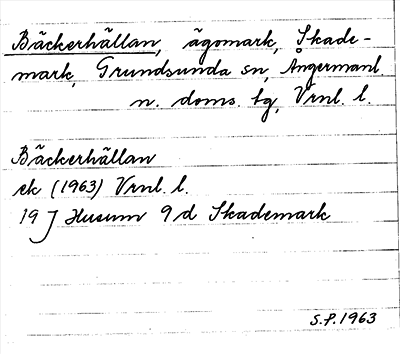 Bäckerhällan, ägomark, Skade-
mark, Grundsunda sn, Ångermanl.
n. doms. tg, Vrnl. l.
Bäckerhällan
ek (1963) Vrnl. l.
19 J Husum 9 d Skademark
S.P. 1963